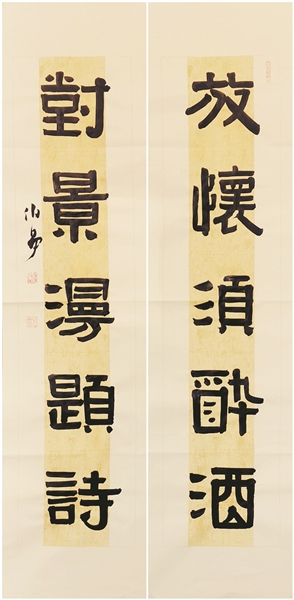 放懷須醉酒
對景漫題詩